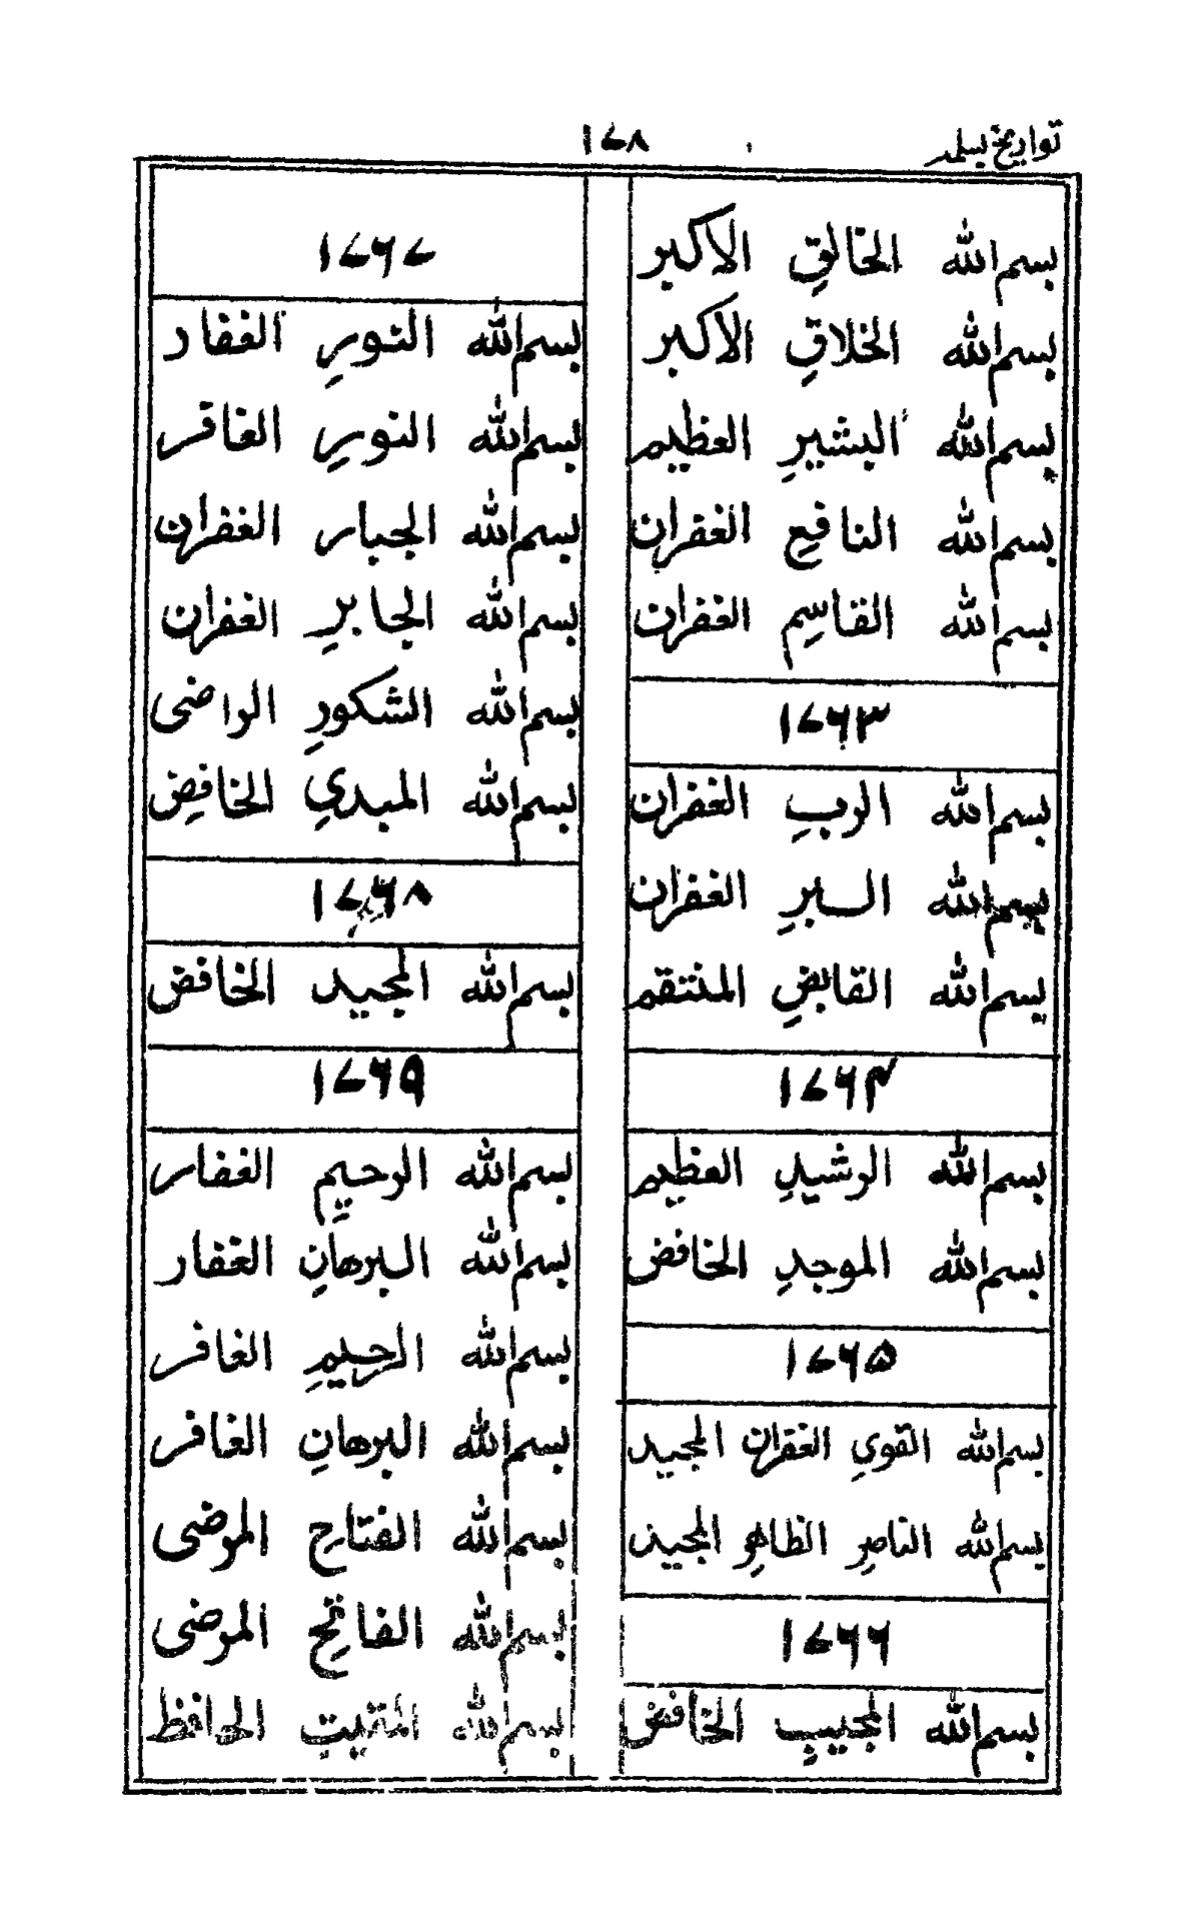 تواریخ بسلمہ
۱۷۸
بسم الله الخالقِ الاکبر
بسم الله الخلاقِ الاکبر
بسم الله البشیرِ العظیم
بسم الله النافعِ الغفران
بسم الله القاسمِ الغفران
۱۷۶۳
بسم الله الربِ الغفران
بسم الله البرِ الغفران
بسم الله القابضِ المنتقم
۱۷۶۴
بسم الله الرشیدِ العظیم
بسم الله الموجدِ الخافض
۱۷۶۵
بسم الله القویِ الغفران المجید
بسم الله الناصرِ الظاهرِ المجید
۱۷۶۶
بسم الله المجیبِ الخافض
۱۷۶۷
بسم الله النورِ الغفار
بسم الله النورِ الغافر
بسم الله الجبار الغفران
بسم الله الجابرِ الغفران
بسم الله الشکورِ الراضی
بسم الله المبدیِ الخافض
۱۷۶۸
بسم الله المجید الخافض
۱۷۶۹
بسم الله الرحیمِ الغفار
بسم الله البرهانِ الغفار
بسم الله الرحیمِ الغافر
بسم الله البرهانِ الغافر
بسم الله الفتاحِ المرضی
بسم الله الفاتحِ المرضی
بسم الله المقیتِ الحافظ